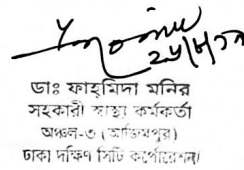 ২৮/৮/১৯
ডাঃ ফাহ্‌মিদা মনির
সহকারী স্বাস্থ্য কর্মকর্তা
অঞ্চল-৩ (আজিমপুর)
ঢাকা দক্ষিণ সিটি কর্পোরেশন।